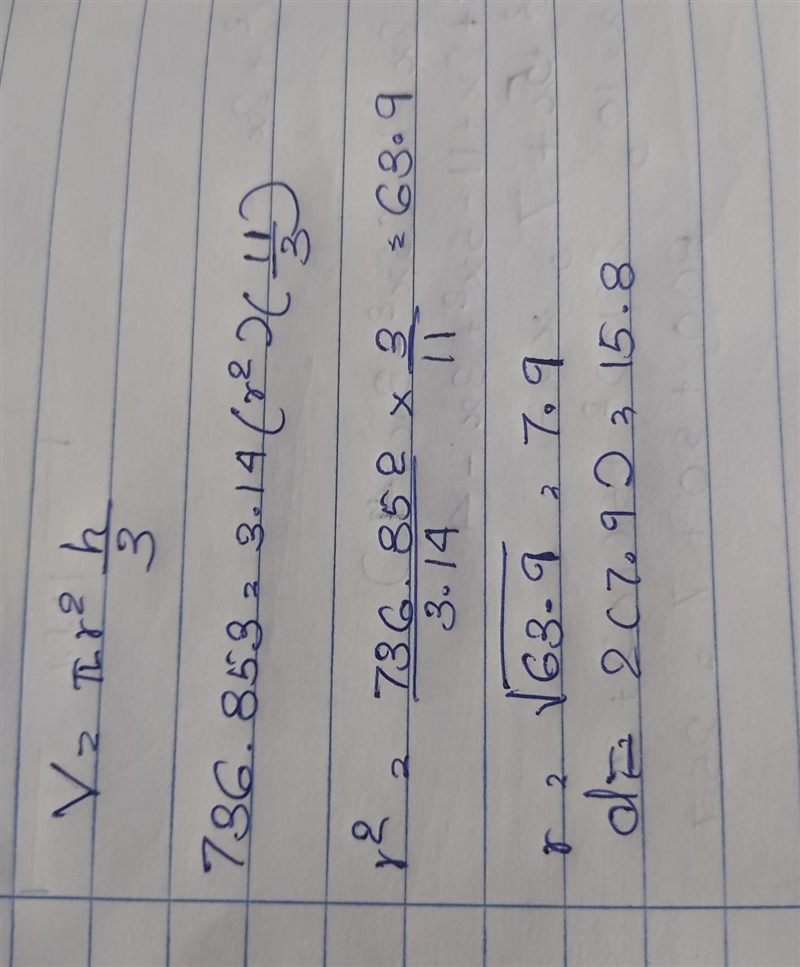 V = πr² h/3
736.853 = 3.14 (r²) (11/3)
r² = 736.852/3.14 × 3/11 = 63.9
r = √63.9 = 7.9
d = 2(7.9) = 15.8